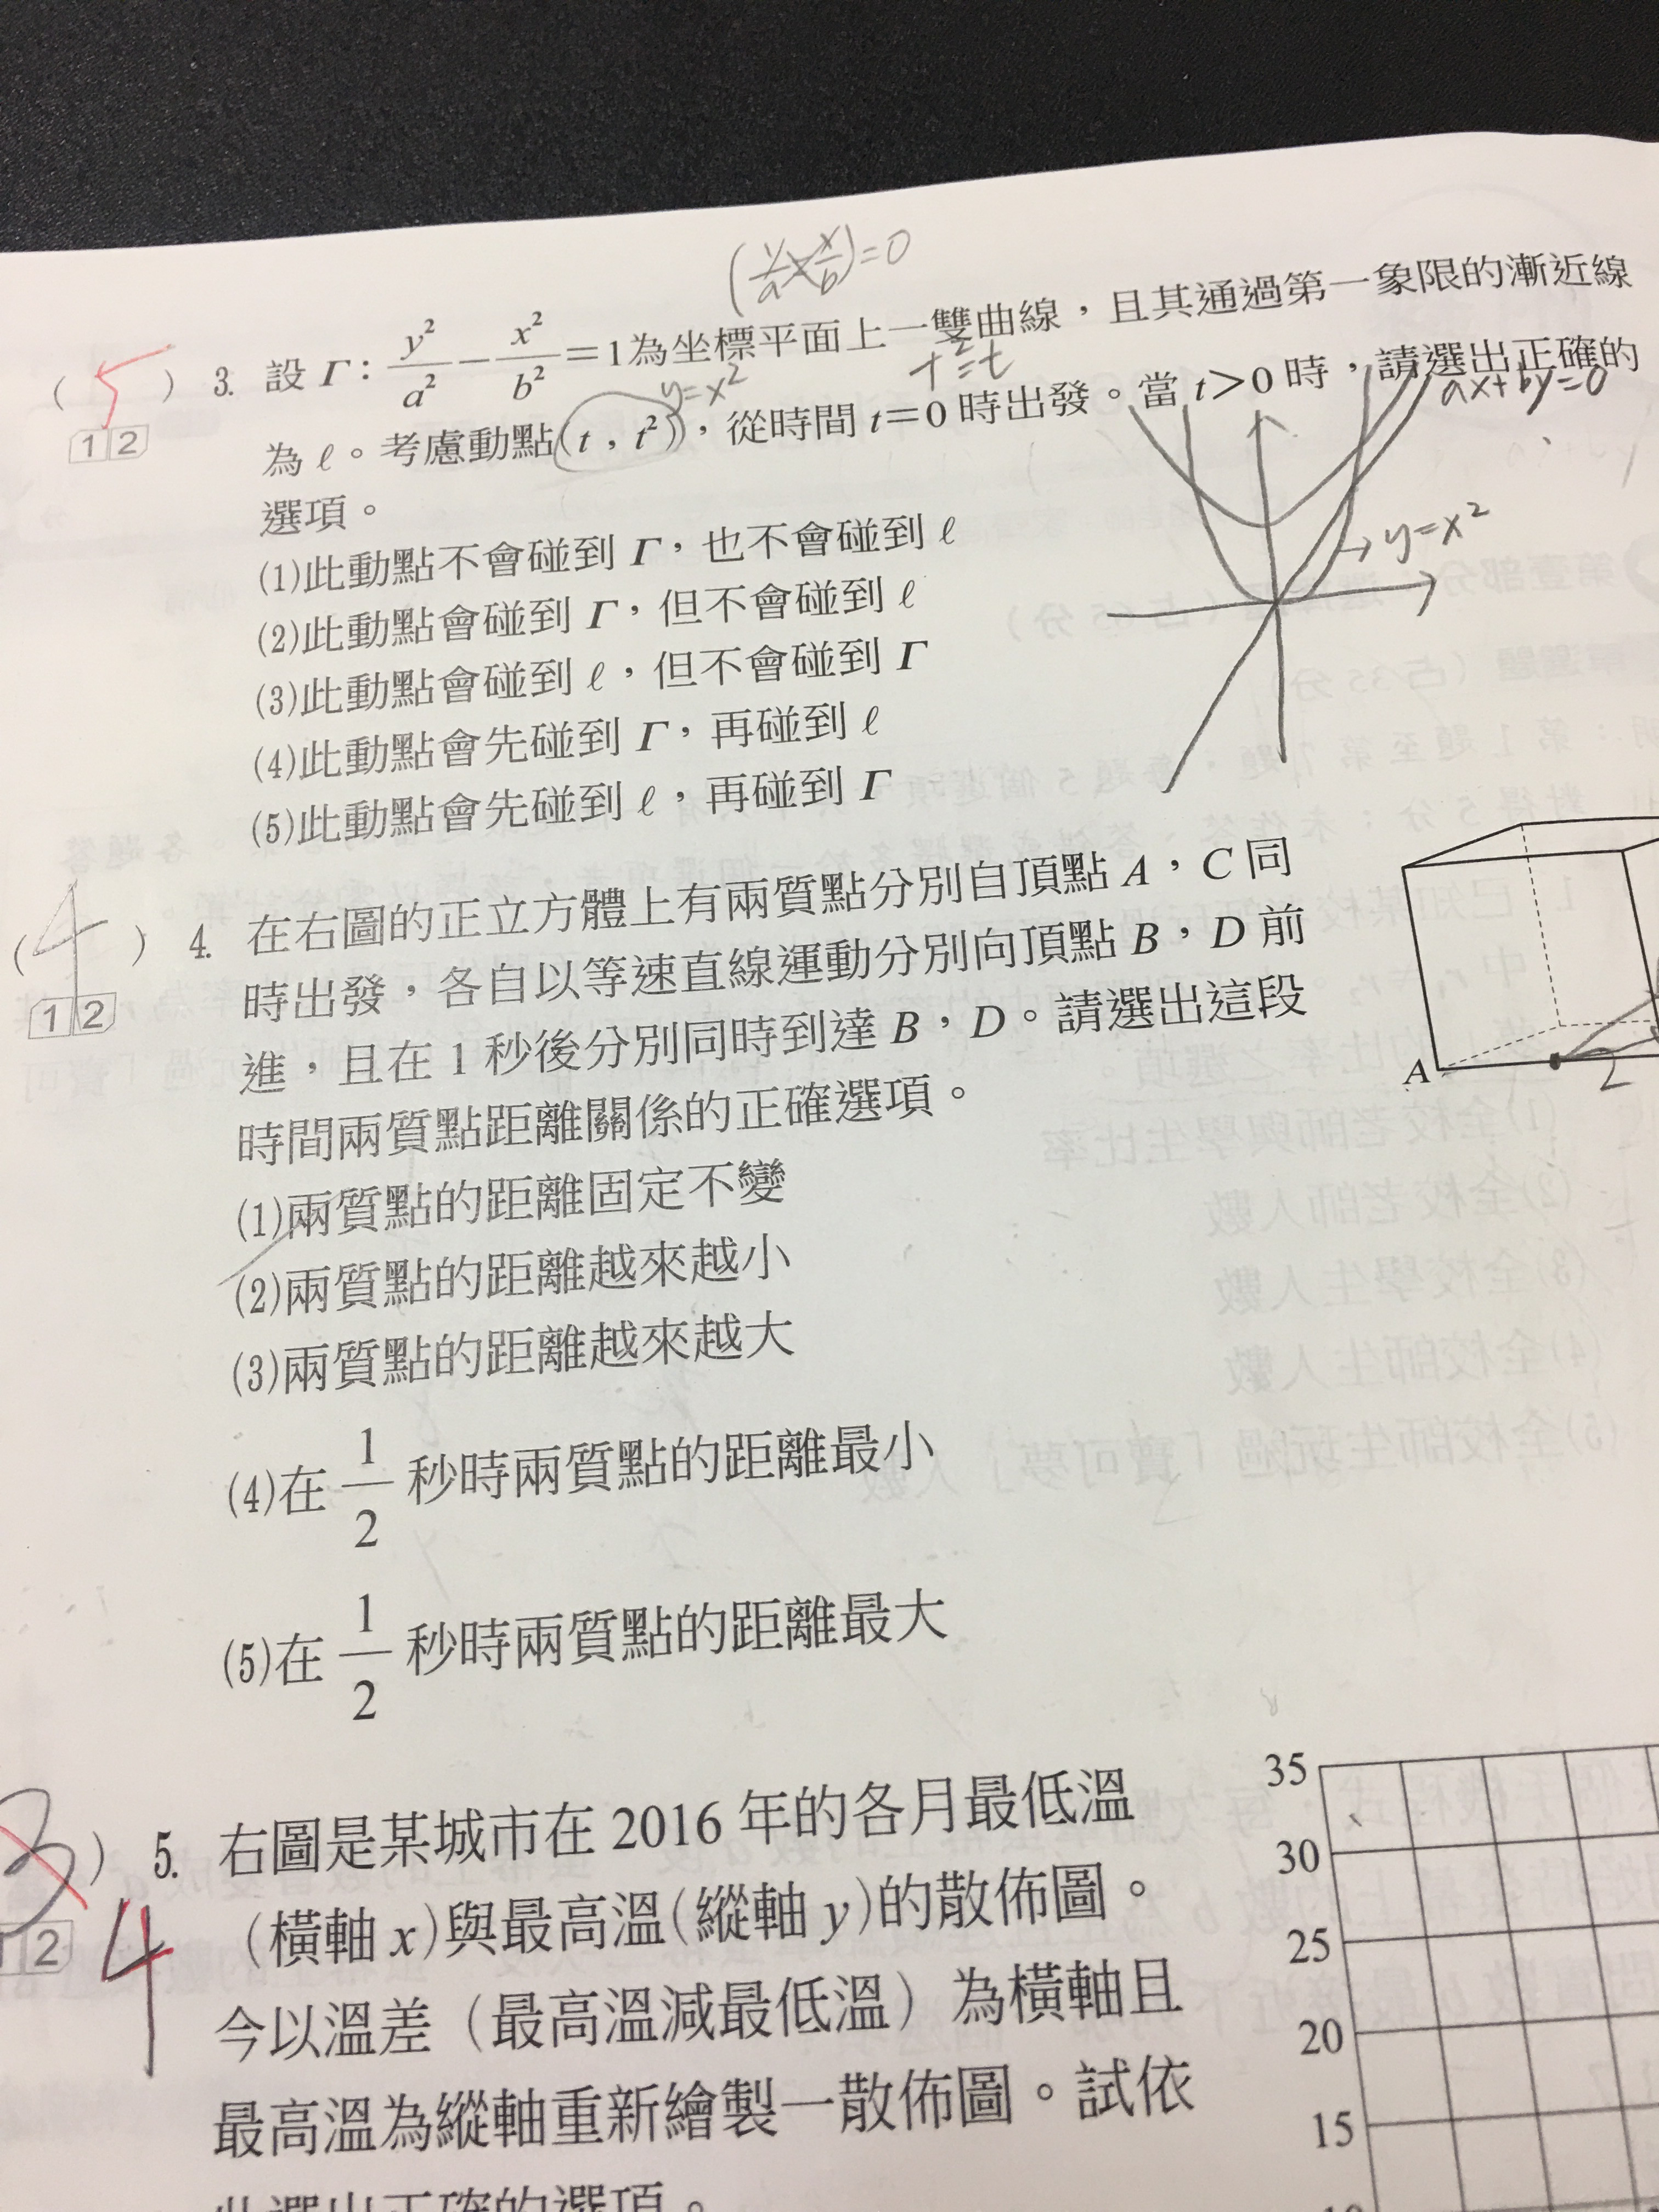 (y/a × x/b)=0
(5) 3. 設 Γ：y²/a² − x²/b² =1為坐標平面上一雙曲線，且其通過第一象限的漸近線
y=x²
t²=t
ax+by=0
1 2 為 ℓ。考慮動點(t，t²)，從時間 t=0 時出發。當 t>0 時，請選出正確的
選項。
(1)此動點不會碰到 Γ，也不會碰到 ℓ
→y=x²
(2)此動點會碰到 Γ，但不會碰到 ℓ
(3)此動點會碰到 ℓ，但不會碰到 Γ
(4)此動點會先碰到 Γ，再碰到 ℓ
(5)此動點會先碰到 ℓ，再碰到 Γ
(4) 4. 在右圖的正立方體上有兩質點分別自頂點 A，C 同
1 2 時出發，各自以等速直線運動分別向頂點 B，D 前
進，且在 1 秒後分別同時到達 B，D。請選出這段
A
2
時間兩質點距離關係的正確選項。
(1)兩質點的距離固定不變
(2)兩質點的距離越來越小
(3)兩質點的距離越來越大
(4)在 1/2 秒時兩質點的距離最小
(5)在 1/2 秒時兩質點的距離最大
3) 5. 右圖是某城市在 2016 年的各月最低溫
2 4 （橫軸 x)與最高溫(縱軸 y)的散佈圖。
今以溫差（最高溫減最低溫）為橫軸且
最高溫為縱軸重新繪製一散佈圖。試依
此選出正確的選項。
35
30
25
20
15
10